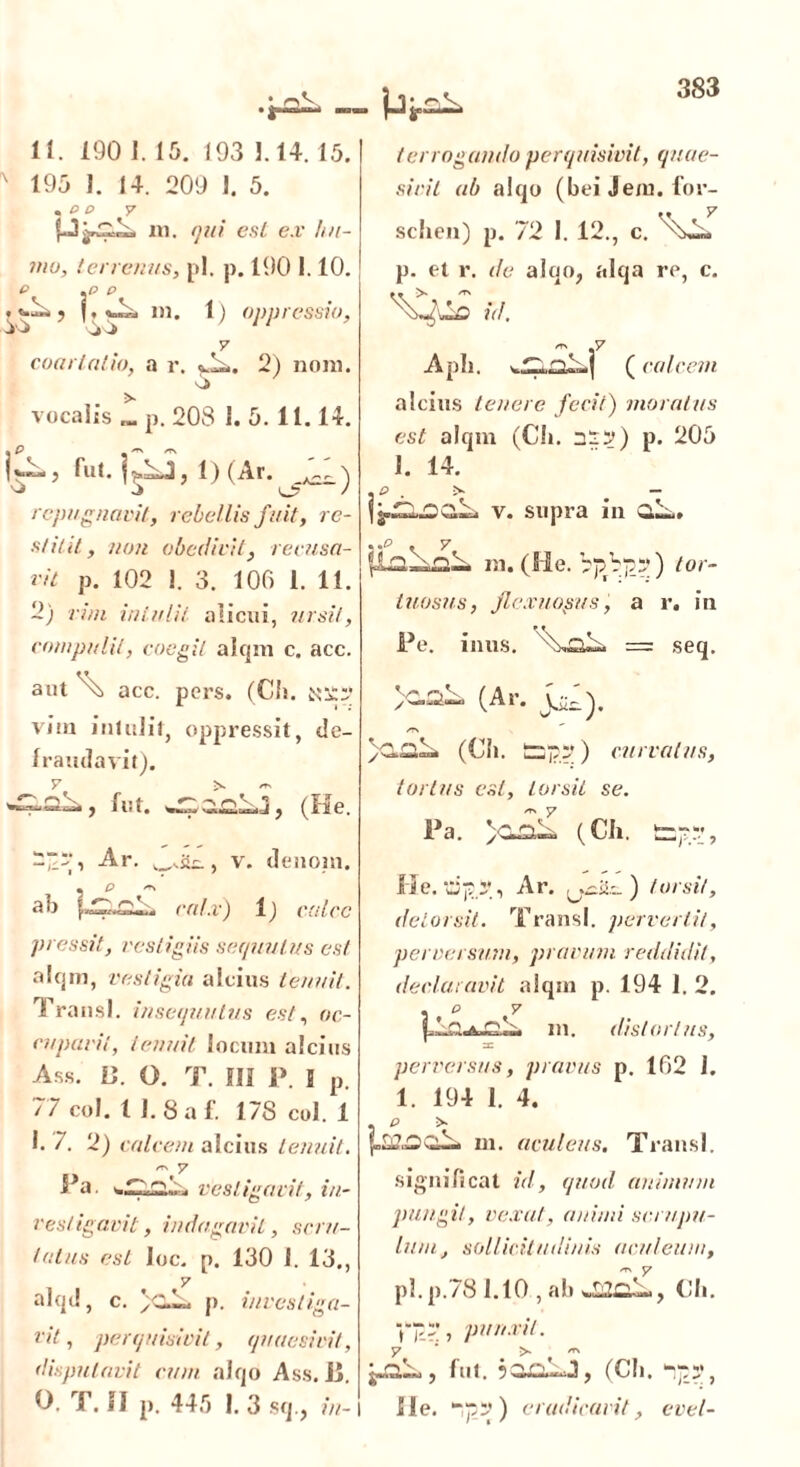 .ܥܩܪ — ܥܦܪܢܐ 383
11. 190 l. 15. 193 l. 14. 15.
195 l. 14. 209 l. 5.
ܥܦܪܢܐ m. qui est ex hu-
mo, terrenus, pl. p. 190 l. 10.
ܥܨܨ, ܥܨܨܐ m. 1) oppressio,
coartatio, a r. ܥܨ. 2) nom.
vocalis p. 208 l. 5. 11. 14.
ܥܨܐ, fut. ܢܥܨܐ, 1) (Ar. عصى)
repugnavit, rebellis fuit, re-
stitit, non obedivit, recusa-
vit p. 102 l. 3. 106 l. 11.
2) vim intulit alicui, ursit,
compulit, coegit alqm c. acc.
aut ܠ acc. pers. (Ch. עצא
vim intulit, oppressit, de-
fraudavit).
ܥܩܒ, fut. ܢܥܩܘܒ, (He.
עקב, Ar. عقب, v. denom.
ab ܥܩܒܐ calx) 1) calce
pressit, vestigiis sequutus est
alqm, vestigia alcius tenuit.
Transl. insequutus est, oc-
cupavit, tenuit locum alcius
Ass. B. O. T. III P. I p.
77 col. 1 l. 8 a f. 178 col. 1
l. 7. 2) calcem alcius tenuit.
Pa. ܥܩܒ vestigavit, in-
vestigavit, indagavit, scru-
tatus est loc. p. 130 l. 13.,
alqd, c. ܥܡ p. investiga-
vit, perquisivit, quaesivit,
disputavit cum alqo Ass. B.
O. T. II p. 445 l. 3 sq., in-
terrogando perquisivit, quae-
sivit ab alqo (bei Jem. for-
schen) p. 72 l. 12., c. ܥܠ
p. et r. de alqo, alqa re, c.
ܡܛܠ id.
Aph. ܐܥܩܒ (calcem
alcius tenere fecit) moratus
est alqm (Ch. עכב) p. 205
l. 14.
ܥܘܩܒܪܐ v. supra in ܥܘ.
ܥܩܠܩܠܐ m. (He. עקלקל) tor-
tuosus, flexuosus, a r. in
Pe. inus. ܥܩܠ = seq.
ܥܩܡ (Ar. عقل).
ܥܩܡ (Ch. עקם) curvatus,
tortus est, torsit se.
Pa. ܥܩܡ (Ch. עקם,
He. עקש, Ar. عقش) torsit,
detorsit. Transl. pervertit,
perversum, pravum reddidit,
declaravit alqm p. 194 l. 2.
ܥܩܝܡܐ m. distortus,
perversus, pravus p. 162 l.
1. 194 l. 4.
ܥܘܩܣܐ m. aculeus. Transl.
significat id, quod animum
pungit, vexat, animi scrupu-
lum, sollicitudinis aculeum,
pl. p. 78 l. 10, ab ܥܩܣ, Ch.
עקץ, punxit.
ܥܩܪ, fut. ܢܥܩܘܪ, (Ch. עקר,
He. עקר) eradicavit, evel-